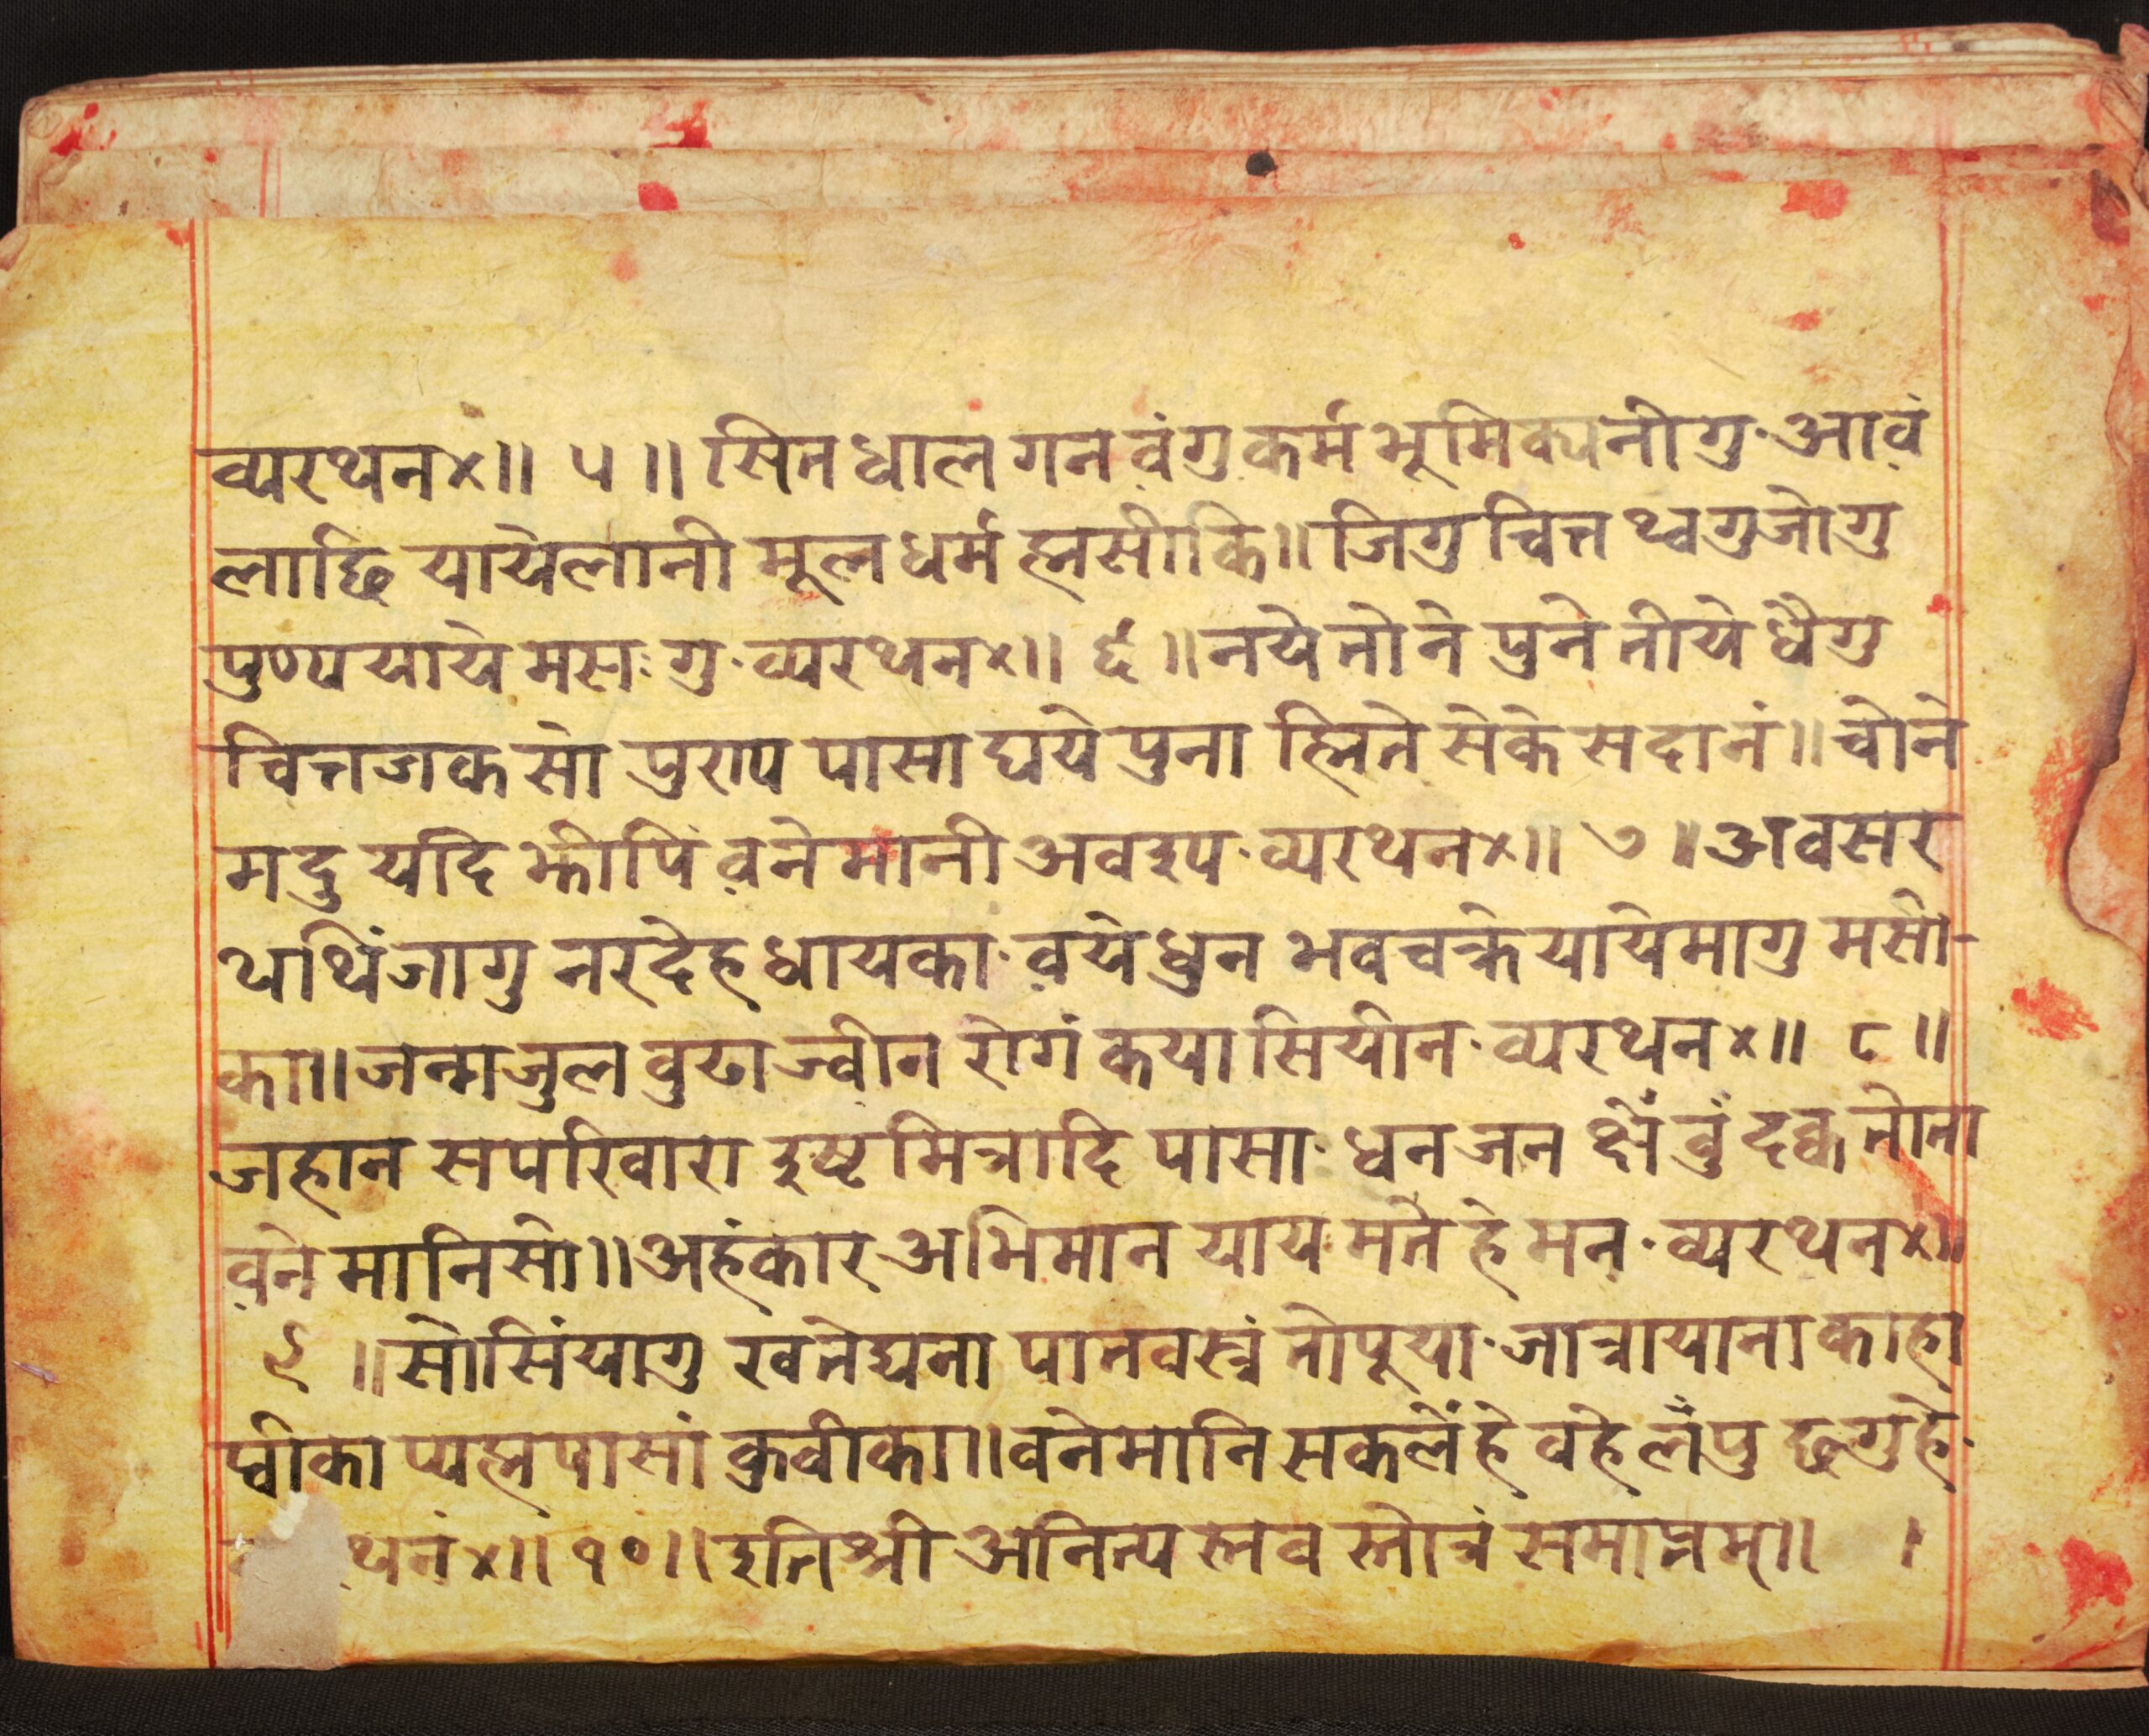 व्यरथन४॥ ५ ॥ सित धाल गन वंगु कर्म भूमि क्यनीगु · आवं
लाछि यायेलानी मूल धर्म ह्नसीकि॥ जिगु चित्त थ्वगु जोगु
पुण्य याये मसःगु · व्यरथन४॥ ६ ॥ नये तोने पुने तीये धैगु
चित्त जक सो पुराप पासा घये पुना ह्निने सेके सदानं॥ चोने
मदु यदि झीपिं वने मानी अवइप · व्यरथन४॥ ७ ॥ अवसर
थथिंजागु नरदेह धायका · वये धुन भवचक्रे याये मागु मसी-
का॥ जन्म जुल वुढा ज्वीन रोगं कया सियीन · व्यरथन४॥ ८ ॥
जहान सपरिवारा इष्टमित्रादि पासा · धन जन क्षें वुं दक्व तोता
वने मानि सो॥ अहंकार अभिमान याय मते हे मन · व्यरथन४॥
९ ॥ सोसिंयागु खने द्यना पानवस्त्रं तोपूया · जात्रा याना काहा
प्वीका प्यह्नपासां कुवीका॥ वनेमानि सकलें हे वहे लँपु छगु हे ·
थनं४॥ १० ॥ इति श्री अनित्य स्तव स्तोत्रं समाप्तम्॥ ।